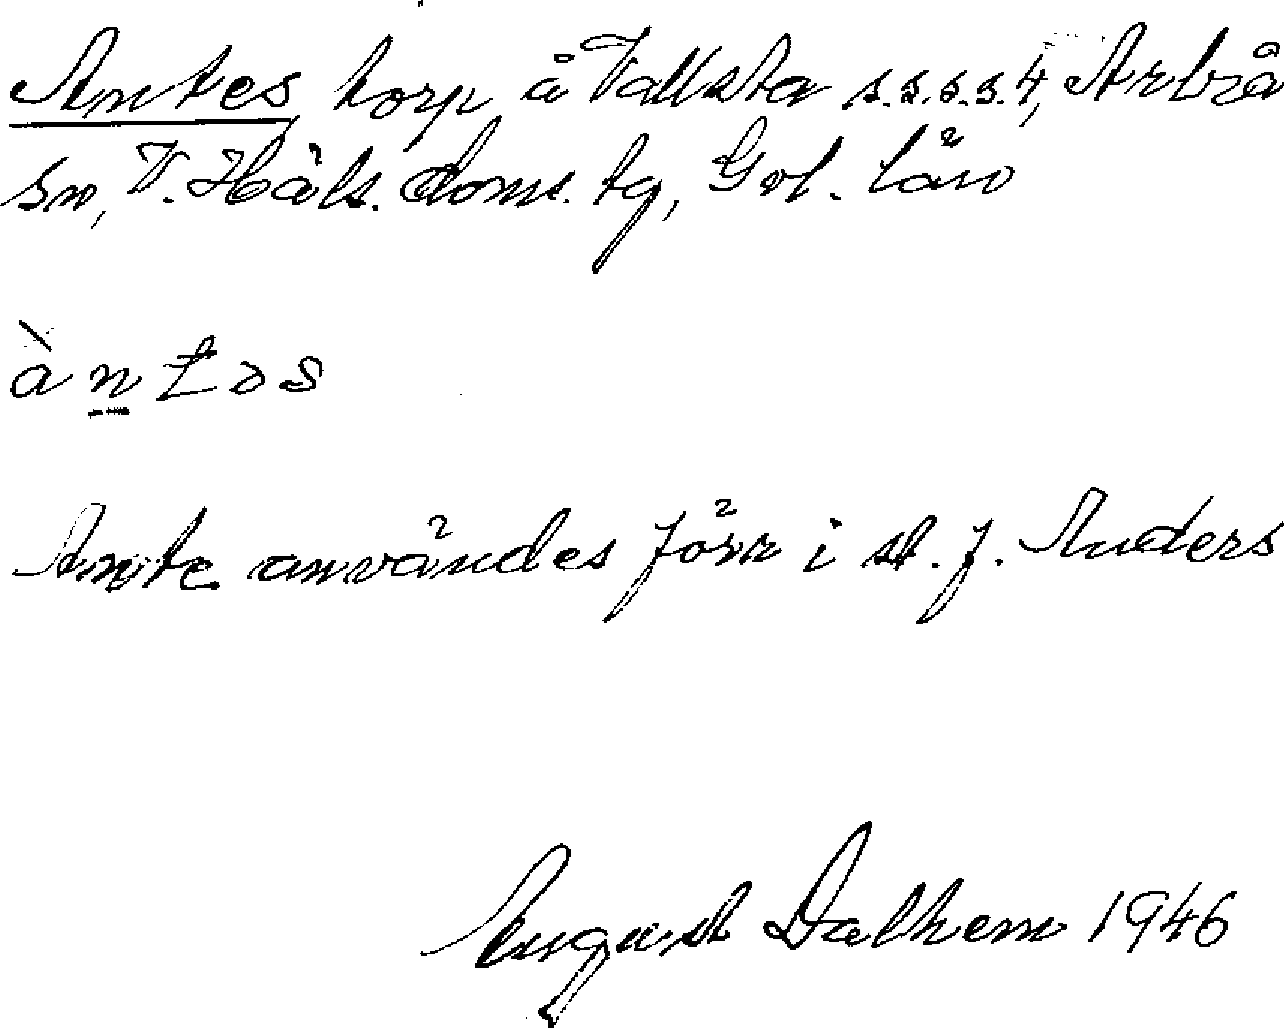 Antes, torp å Vallsta s.s.s.s. 4, Arbrå
sn, V. Häls. doms. tg, Gvl. län
àntəs
Ante användes förr i st. f. Anders
August Dalhem 1946